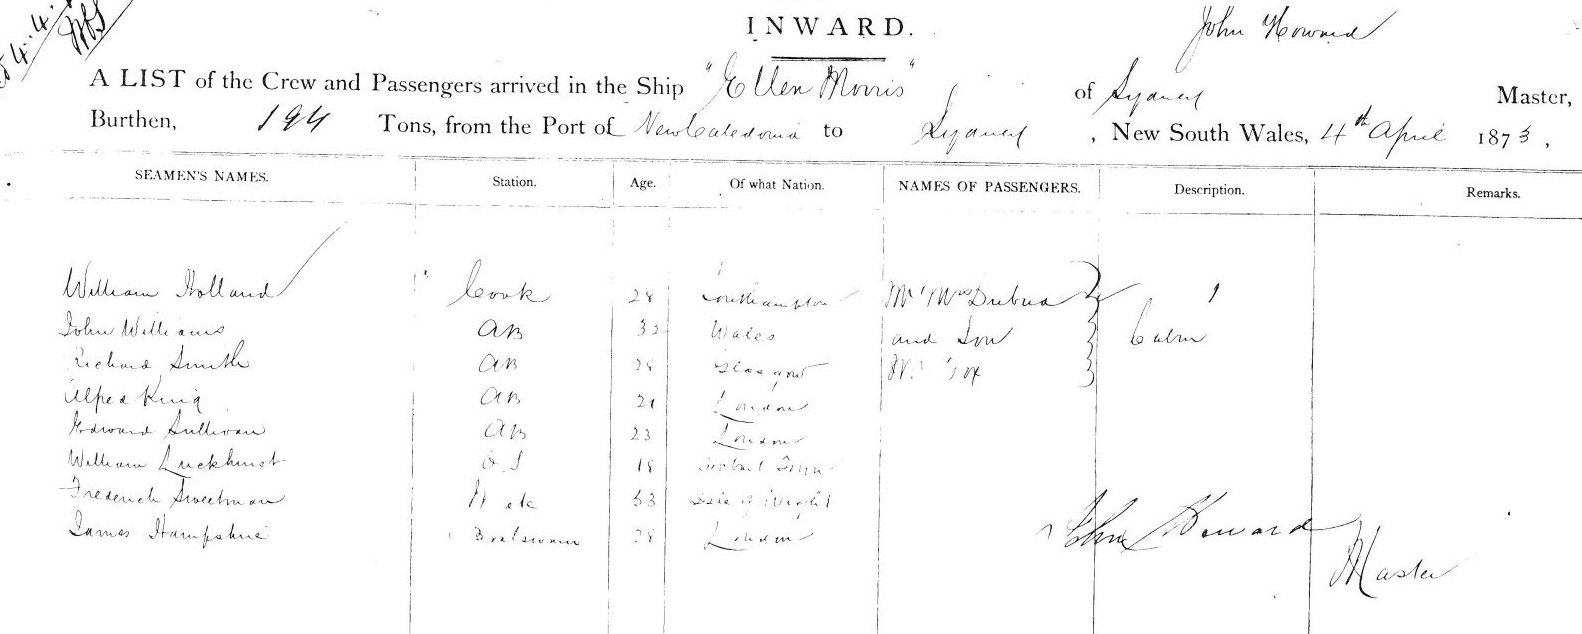 4.4.
INWARD.
John Howard
A LIST of the Crew and Passengers arrived in the Ship "Ellen Morris" of Sydney Master,
Burthen, 194 Tons, from the Port of New Caledonia to Sydney, New South Wales, 4th April 1873.
SEAMEN'S NAMES. Station. Age. Of what Nation. NAMES OF PASSENGERS. Description. Remarks.
William Holland Cook 28 Southampton Mr Mrs 1
John Williams AB 32 Wales and Son Cabin
Richard Smith AB 28 Glasgow
Alfred King AB 21 London
Edward Sullivan AB 23 London
William Luckhurst O.S 18 Hobart Town
Frederick Sweetman 53 Isle of Wight
James Hampshire Boatswain 28 London
John Howard
Master